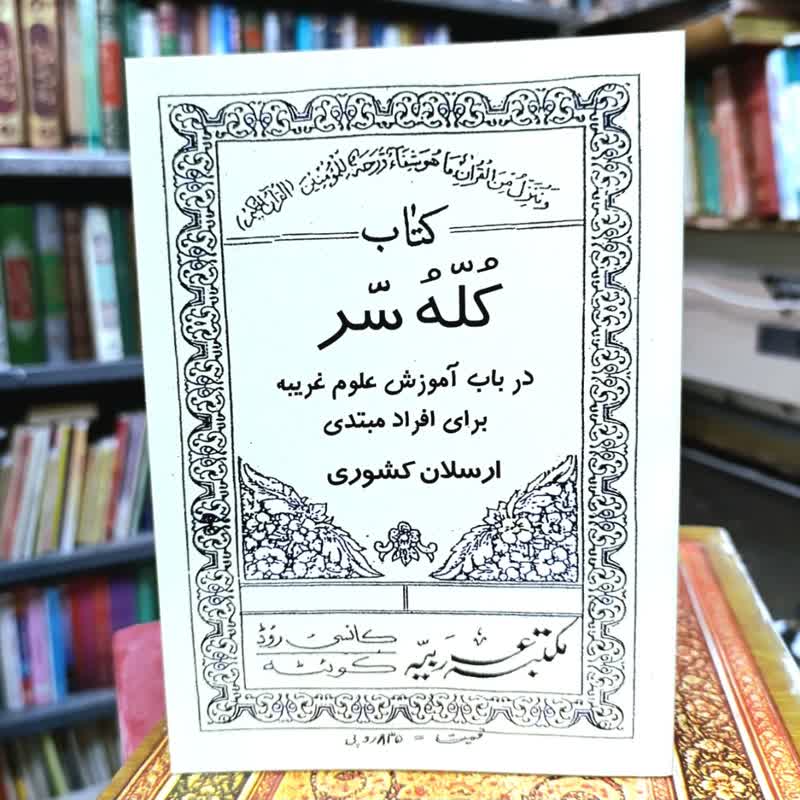 وَنُنَزِّلُ مِنَ الْقُرْآنِ مَا هُوَ شِفَاءٌ وَّرَحْمَةٌ لِّلْمُؤْمِنِيْنَ (القرآن الحكيم)
کتاب
کُلّهُ سّر
در باب آموزش علوم غریبه
برای افراد مبتدی
ارسلان کشوری
مکتبہ عربیّہ کانسی روڈ
کوئٹہ
قیمت = ۸۳۵ روپی